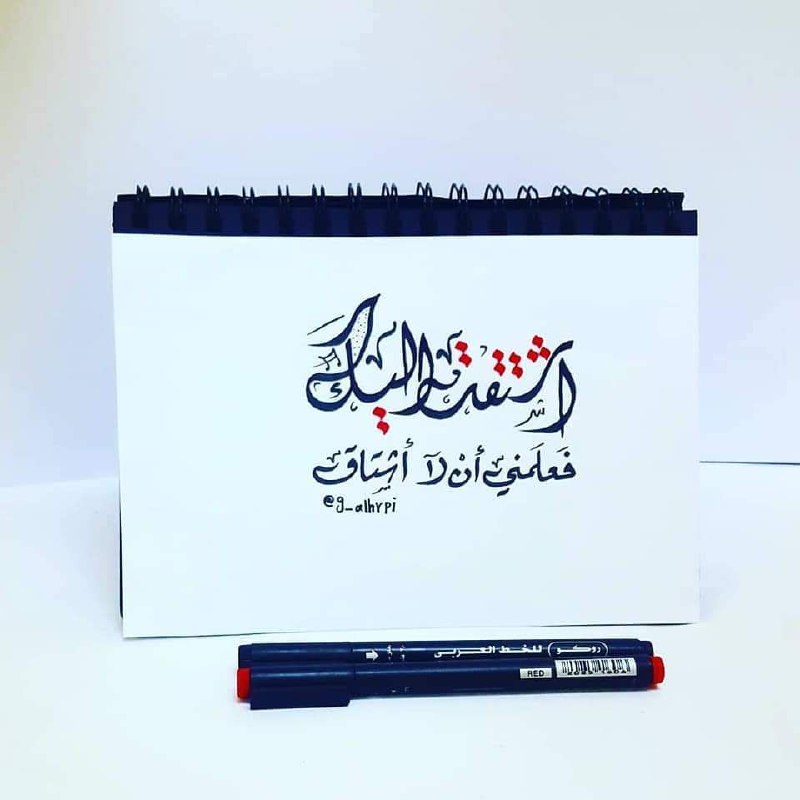 اشتقت اليك
فَعلَمني أنْ لآ أشتَاق
@g_alhrpi
روكو للخط العربي
RED